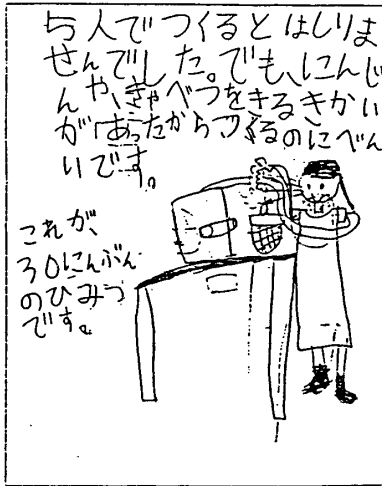 5人でつくるとはしりま
せんでした。でも、にんじ
んや、きゃべつをきるきかい
が「あったからつくるのにべん
りです。
これが、
30にんぶん
のひみつ
です。